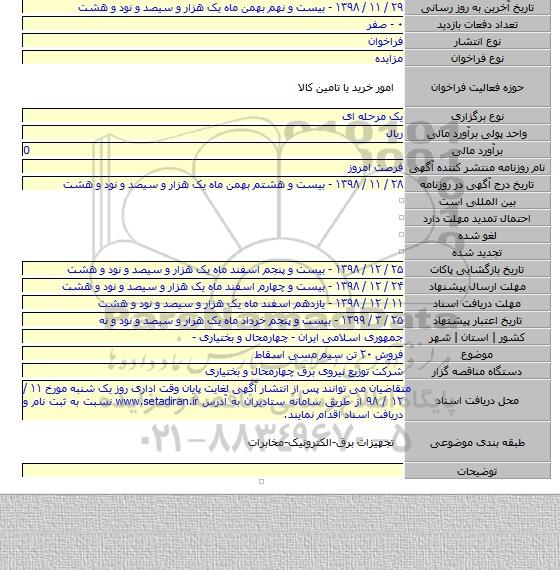 تاریخ آخرین به روز رسانی ۲۹ / ۱۱ / ۱۳۹۸ - بیست و نهم بهمن ماه یک هزار و سیصد و نود و هشت
تعداد دفعات بازدید ۰ - صفر
نوع انتشار فراخوان
نوع فراخوان مزایده
حوزه فعالیت فراخوان امور خرید یا تامین کالا
نوع برگزاری یک مرحله ای
واحد پولی برآورد مالی ریال
برآورد مالی 0
نام روزنامه منتشر کننده آگهی فرصت امروز
تاریخ درج آگهی در روزنامه ۲۸ / ۱۱ / ۱۳۹۸ - بیست و هشتم بهمن ماه یک هزار و سیصد و نود و هشت
بین المللی است
احتمال تمدید مهلت دارد
لغو شده
تجدید شده
تاریخ بازگشایی پاکات ۲۵ / ۱۲ / ۱۳۹۸ - بیست و پنجم اسفند ماه یک هزار و سیصد و نود و هشت
مهلت ارسال پیشنهاد ۲۴ / ۱۲ / ۱۳۹۸ - بیست و چهارم اسفند ماه یک هزار و سیصد و نود و هشت
مهلت دریافت اسناد ۱۱ / ۱۲ / ۱۳۹۸ - یازدهم اسفند ماه یک هزار و سیصد و نود و هشت
تاریخ اعتبار پیشنهاد ۲۵ / ۳ / ۱۳۹۹ - بیست و پنجم خرداد ماه یک هزار و سیصد و نود و نه
کشور | استان | شهر جمهوری اسلامی ایران - چهارمحال و بختیاری -
موضوع فروش ۲۰ تن سیم مسی اسقاط
دستگاه مناقصه گزار شرکت توزیع نیروی برق چهارمحال و بختیاری
محل دریافت اسناد متقاضیان می توانند پس از انتشار آگهی لغایت پایان وقت اداری روز یک شنبه مورخ ۱۱ /
۱۲ / ۹۸ از طریق سامانه ستادیران به آدرس www.setadiran.ir نسبت به ثبت نام و
دریافت اسناد اقدام نمایند.
طبقه بندی موضوعی تجهیزات برق-الکترونیک-مخابرات
توضیحات
۰۲۱-۸۸۳۴۹۶۷۰-۵